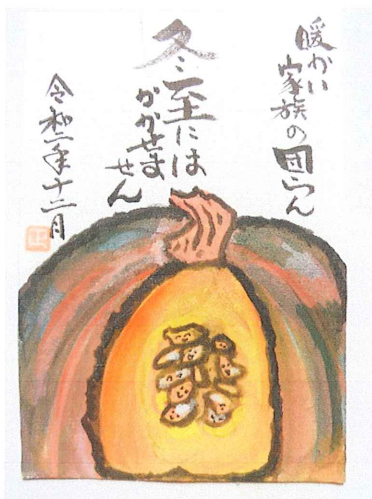 暖かい
家族の団らん
冬至には
かかせま
せん
令和二年十二月
正